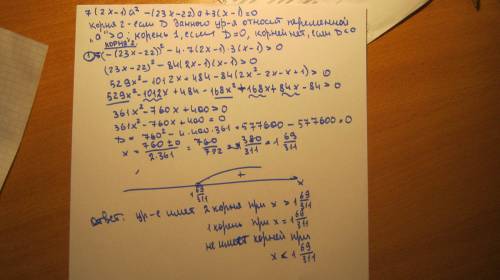 7(2x-1)a² -(23x-22)a+3(x-1)=0
корня 2 - если D данного ур-я относит переменной
"a" >0; корень 1, если D=0, корней нет, если D<0
корня 2
① (-(23x-22))² - 4·7(2x-1)·3(x-1)>0
(23x-22)² - 84(2x-1)(x-1)>0
529x² - 1012x + 484 - 84(2x²-2x-x+1)>0
529x² - 1012x + 484 - 168x² + 168x + 84x - 84 >0
361x² - 760x + 400 >0
361x² - 760x + 400 = 0
D = 760² - 4·400·361 = 577600 - 577600 = 0
x = 760±0/2·361 = 760/722 = 380/311 = 1 69/311
+
1 69/311
x
Ответ: ур-е имеет 2 корня при x > 1 69/311
1 корень при x = 1 69/311
не имеет корней при
x < 1 69/311